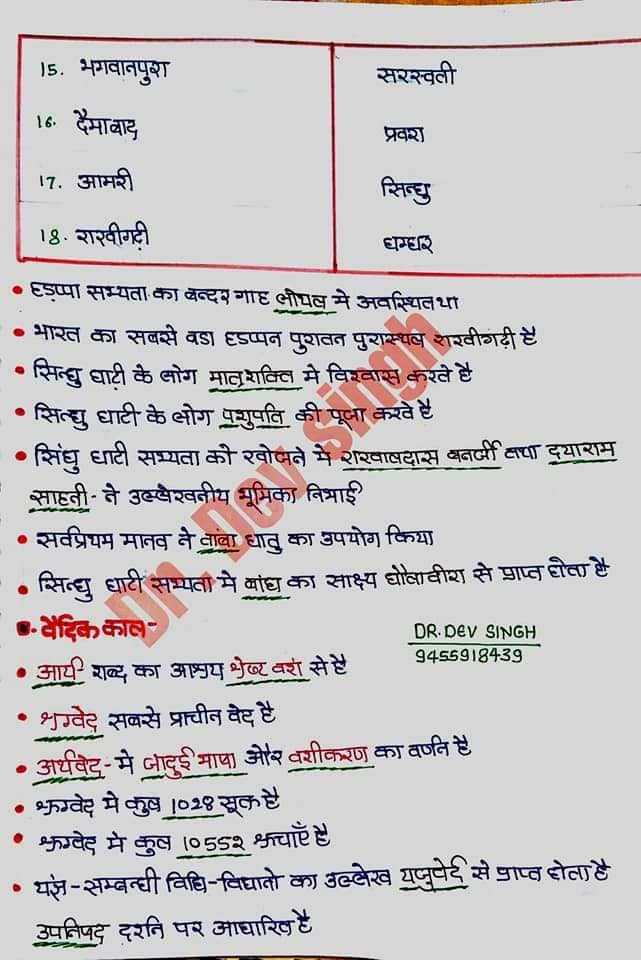 15. भगवानपुरा सरस्वती
16. दैमाबाद प्रवरा
17. आमरी सिन्धु
18. राखीगढ़ी घग्घर
• हडप्पा सभ्यता का बन्दरगाह लोथल मे अवस्थित था
• भारत का सबसे बडा हडप्पन पुरातन पुरास्थल राखीगढ़ी है
• सिन्धु घाटी के लोग मातृशक्ति मे विश्वास करते है
• सिन्धु घाटी के लोग पशुपति की पूजा करते है
• सिंधु घाटी सभ्यता को खोजने मे राखालदास बनर्जी तथा दयाराम
साहनी - ने उल्लेखनीय भूमिका निभाई
• सर्वप्रथम मानव ने तांबा धातु का उपयोग किया
• सिन्धु घाटी सभ्यता मे बांध का साक्ष्य धौलावीरा से प्राप्त होता है
• वैदिक काल -
DR. DEV SINGH
9455918439
• आर्य शब्द का आश्रय श्रेष्ट वशं से है
• ऋग्वेद सबसे प्राचीन वेद है
• अर्थवेद - मे जादुई माया और वशीकरण का वर्णन है
• ऋग्वेद मे कुल 1028 सूक्त है
• ऋग्वेद मे कुल 10552 ऋचाएँ है
• यज्ञं - सम्बन्धी विधि-विधानो का उल्लेख यजुर्वेद से प्राप्त होता है
उपनिषद दर्शन पर आधारित है
Dr. Dev singh